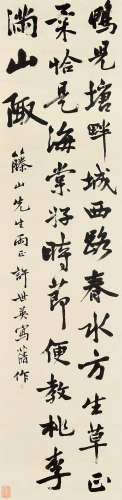 鸭儿塘畔城西路春水方生草正
柔恰是海棠好時節便教桃李
满山陬
籐山先生雨正許世英寫舊作